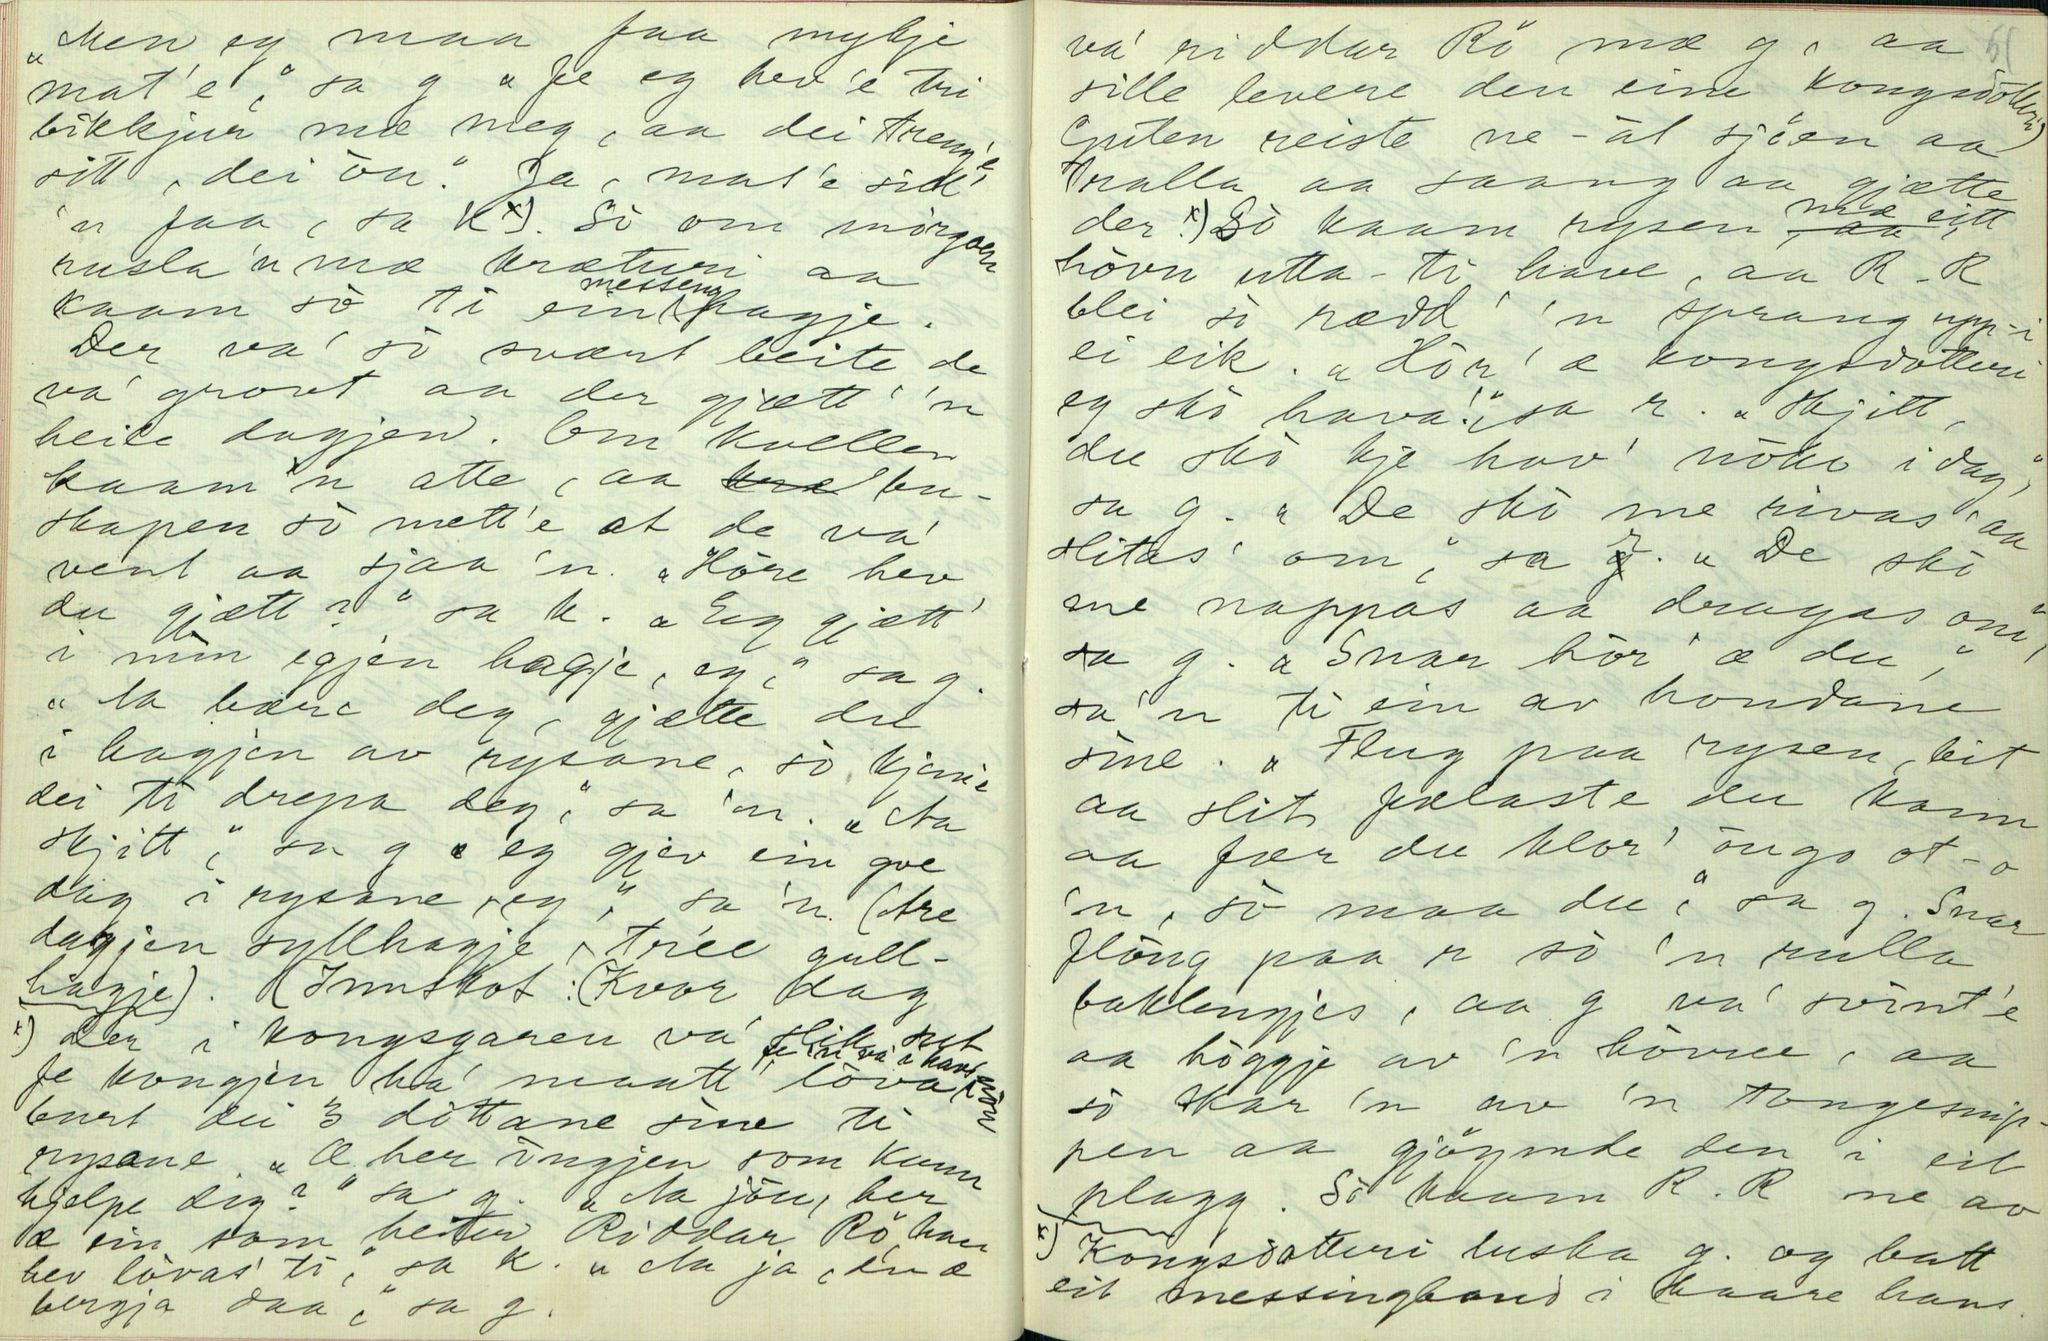 „Men eg maa faa mykje
mat'e," sa g „Fe eg hev'e tri
bikkjur mæ meg, aa dei treng'e
sitt, dei òu." Ja, mat'e sill'
'n faa, sa K x). Sò om mòrgoen
rusla'n mæ kræturi aa
kaam sò ti ein messing hagje.
Der va' sò svært beite de
va' grovt aa der gjætt' 'n
heile dagjen. Om kvellen
kaam'n atte, aa bu-
skapen sò mett'e at de va'
vent aa sjaa 'n. „Hòre hev
du gjætt?" sa K. „Eg gjætt'
i min eigjen hagje, eg," sa g.
„Na bære deg, gjætte du
i hagjen av rysane, sò kjem'e
dei ti drepa deg," sa 'n. „Aa
skjitt," sa g „eg gjev ein goe
dag i rysane, eg," sa 'n. (Are
dagjen syllhagje, tr'ee gull-
hagje). (Innskot: (Kvar dag
x) Der i kongsgaren va' slik sut
fe 'n va' i havsnòu
fe kongjen ha' maatt' lòva
burt dei 3 dòttane sine ti
rysane. „Æ her ingjen som kann
hjelpe dig?" sa g. „Aa jòu, her
æ ein som heiter Riddar Rò han
hev lòvas' ti," sa K. „Aa ja, den æ
bergja daa," sa g.
va' riddar Rò mæ g, aa 61
sille levere den eine kongsdòtteri)
Guten reiste ne-åt sjòen aa
tralla aa saang aa gjætte
der. x) Sò kaam rysen mæ eitt
hòvu utta-ti have, aa R-R
blei sò rædd' 'n sprang upp-i
ei eik. „Hòr' æ kongsdòtteri
eg skò hava'!," sa r. „Skjitt,
du skò kje hav' nòko idag,"
sa g. „De skò me rivas' aa
slitas' om," sa r. „De skò
me nappas aa dragas om,"
sa g. „Snar hòr' æ du,"
sa'n ti ein av hondane
sine. „Flug paa rysen, bit
aa slit fælaste du kann
aa fær du klor' òugo ot-o
'n, sò maa du," sa g. Snar
flòug paa r sò 'n rulla
baklengjes, aa g va' svint'e
aa hòggje av 'n hòvue, aa
sò skar 'n av 'n tongesnip-
pen aa gjòymde den i eit
plagg. Sò kaam R. R ne av
x) Kongsdòtteri luska g. og batt
eit messingband i haare hans.